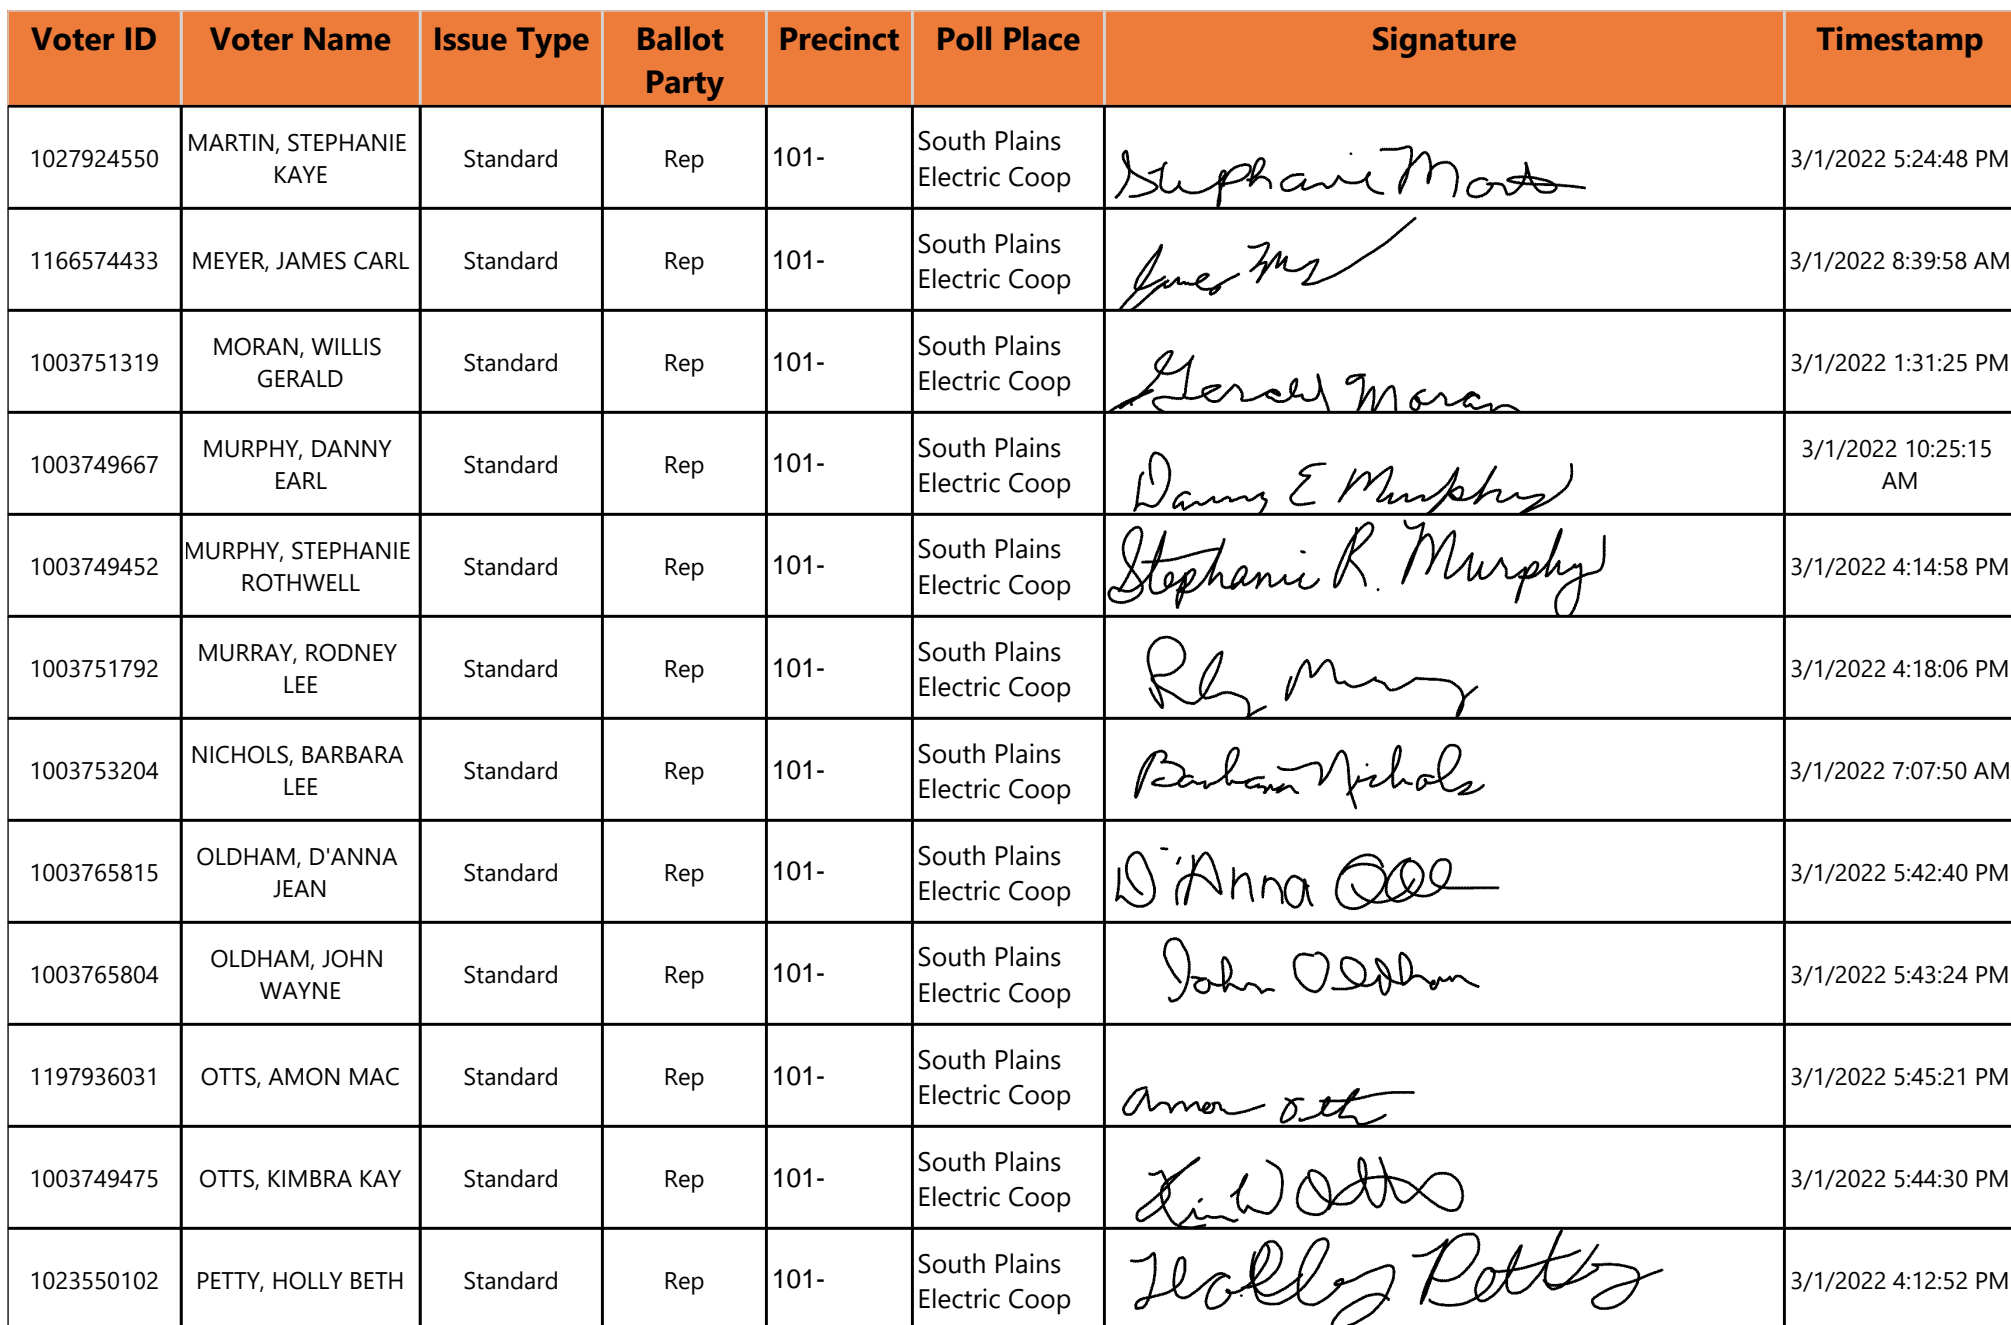 Voter ID Voter Name Issue Type Ballot Party Precinct Poll Place Signature Timestamp
1027924550 MARTIN, STEPHANIE KAYE Standard Rep 101- South Plains Electric Coop Stephanie 3/1/2022 5:24:48 PM
1166574433 MEYER, JAMES CARL Standard Rep 101- South Plains Electric Coop James 3/1/2022 8:39:58 AM
1003751319 MORAN, WILLIS GERALD Standard Rep 101- South Plains Electric Coop Gerald Moran 3/1/2022 1:31:25 PM
1003749667 MURPHY, DANNY EARL Standard Rep 101- South Plains Electric Coop Danny E Murphy 3/1/2022 10:25:15 AM
1003749452 MURPHY, STEPHANIE ROTHWELL Standard Rep 101- South Plains Electric Coop Stephanie R. Murphy 3/1/2022 4:14:58 PM
1003751792 MURRAY, RODNEY LEE Standard Rep 101- South Plains Electric Coop 3/1/2022 4:18:06 PM
1003753204 NICHOLS, BARBARA LEE Standard Rep 101- South Plains Electric Coop Barbara Nichols 3/1/2022 7:07:50 AM
1003765815 OLDHAM, D'ANNA JEAN Standard Rep 101- South Plains Electric Coop D'Anna 3/1/2022 5:42:40 PM
1003765804 OLDHAM, JOHN WAYNE Standard Rep 101- South Plains Electric Coop John Oldham 3/1/2022 5:43:24 PM
1197936031 OTTS, AMON MAC Standard Rep 101- South Plains Electric Coop Amon Otts 3/1/2022 5:45:21 PM
1003749475 OTTS, KIMBRA KAY Standard Rep 101- South Plains Electric Coop Kim W Otts 3/1/2022 5:44:30 PM
1023550102 PETTY, HOLLY BETH Standard Rep 101- South Plains Electric Coop Holly Petty 3/1/2022 4:12:52 PM